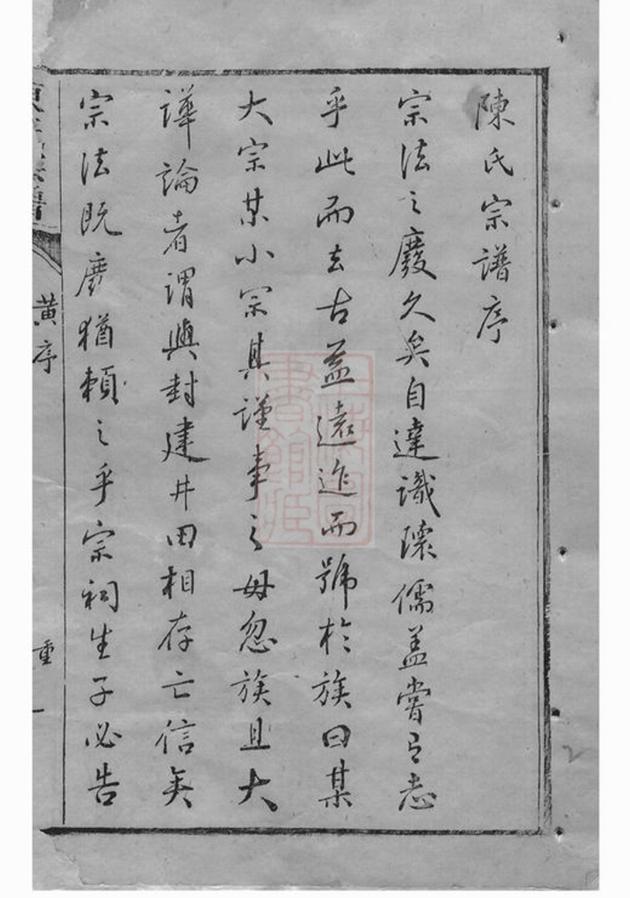 陳氏宗譜序
宗法之廢久矣自達識瓌儒蓋嘗有志
乎此而去古益遠迮而號於族曰某
大宗某小宗其謹事之毋忽族且大
譁論者謂與封建井田相存亡信矣
宗法既廢猶賴之乎宗祠生子必告
黃序
重
一